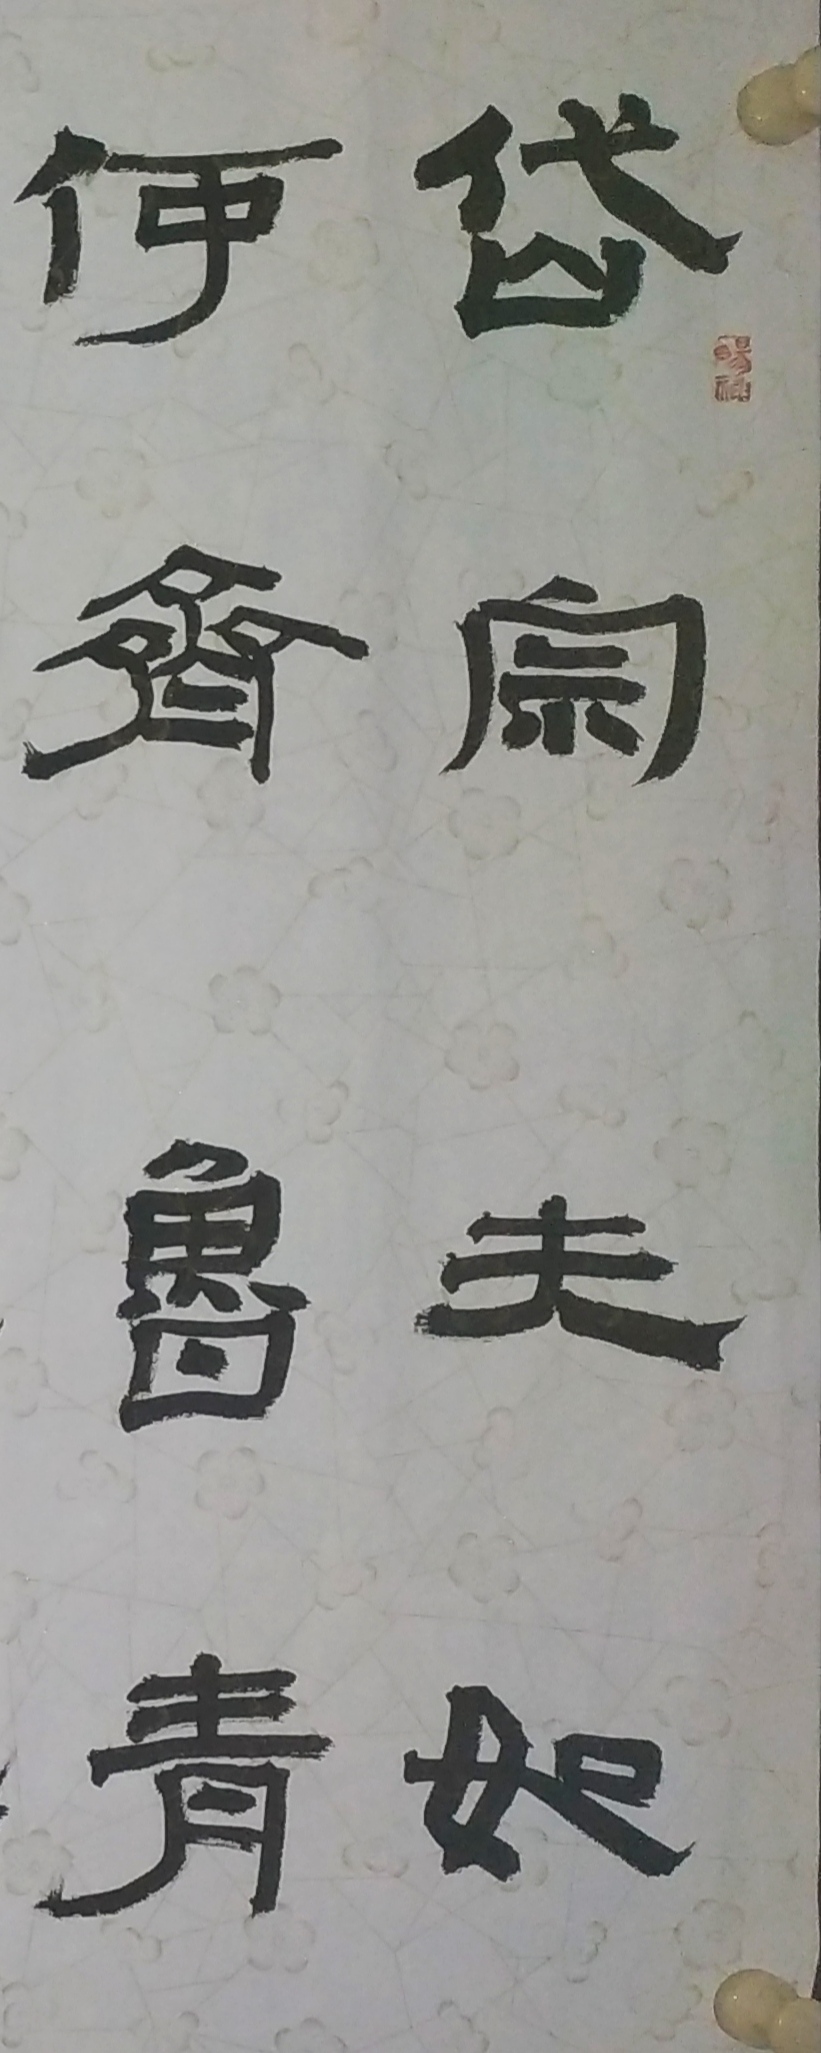 岱宗夫如
何齊魯青